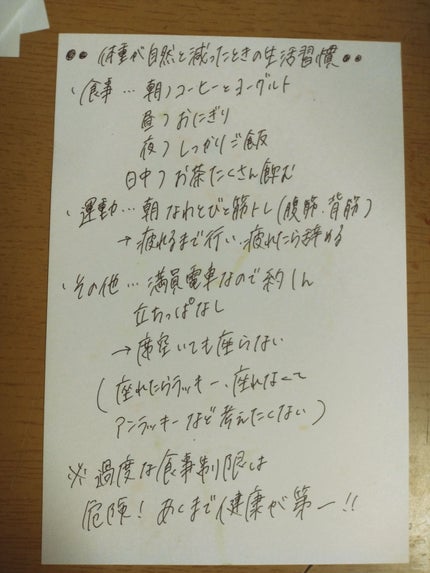 ●● 体重が自然と減ったときの生活習慣 ●●
・食事…朝)コーヒーとヨーグルト
昼)おにぎり
夜)しっかりご飯
日中)お茶たくさん飲む
・運動…朝 なわとびと筋トレ(腹筋、背筋)
→疲れるまで行い、疲れたら辞める
・その他…満員電車なので約1h
立ちっぱなし
→席空いても座らない
(座れたらラッキー、座れなくて
アンラッキーなど考えたくない)
※過度な食事制限は
危険!あくまで健康が第一!!